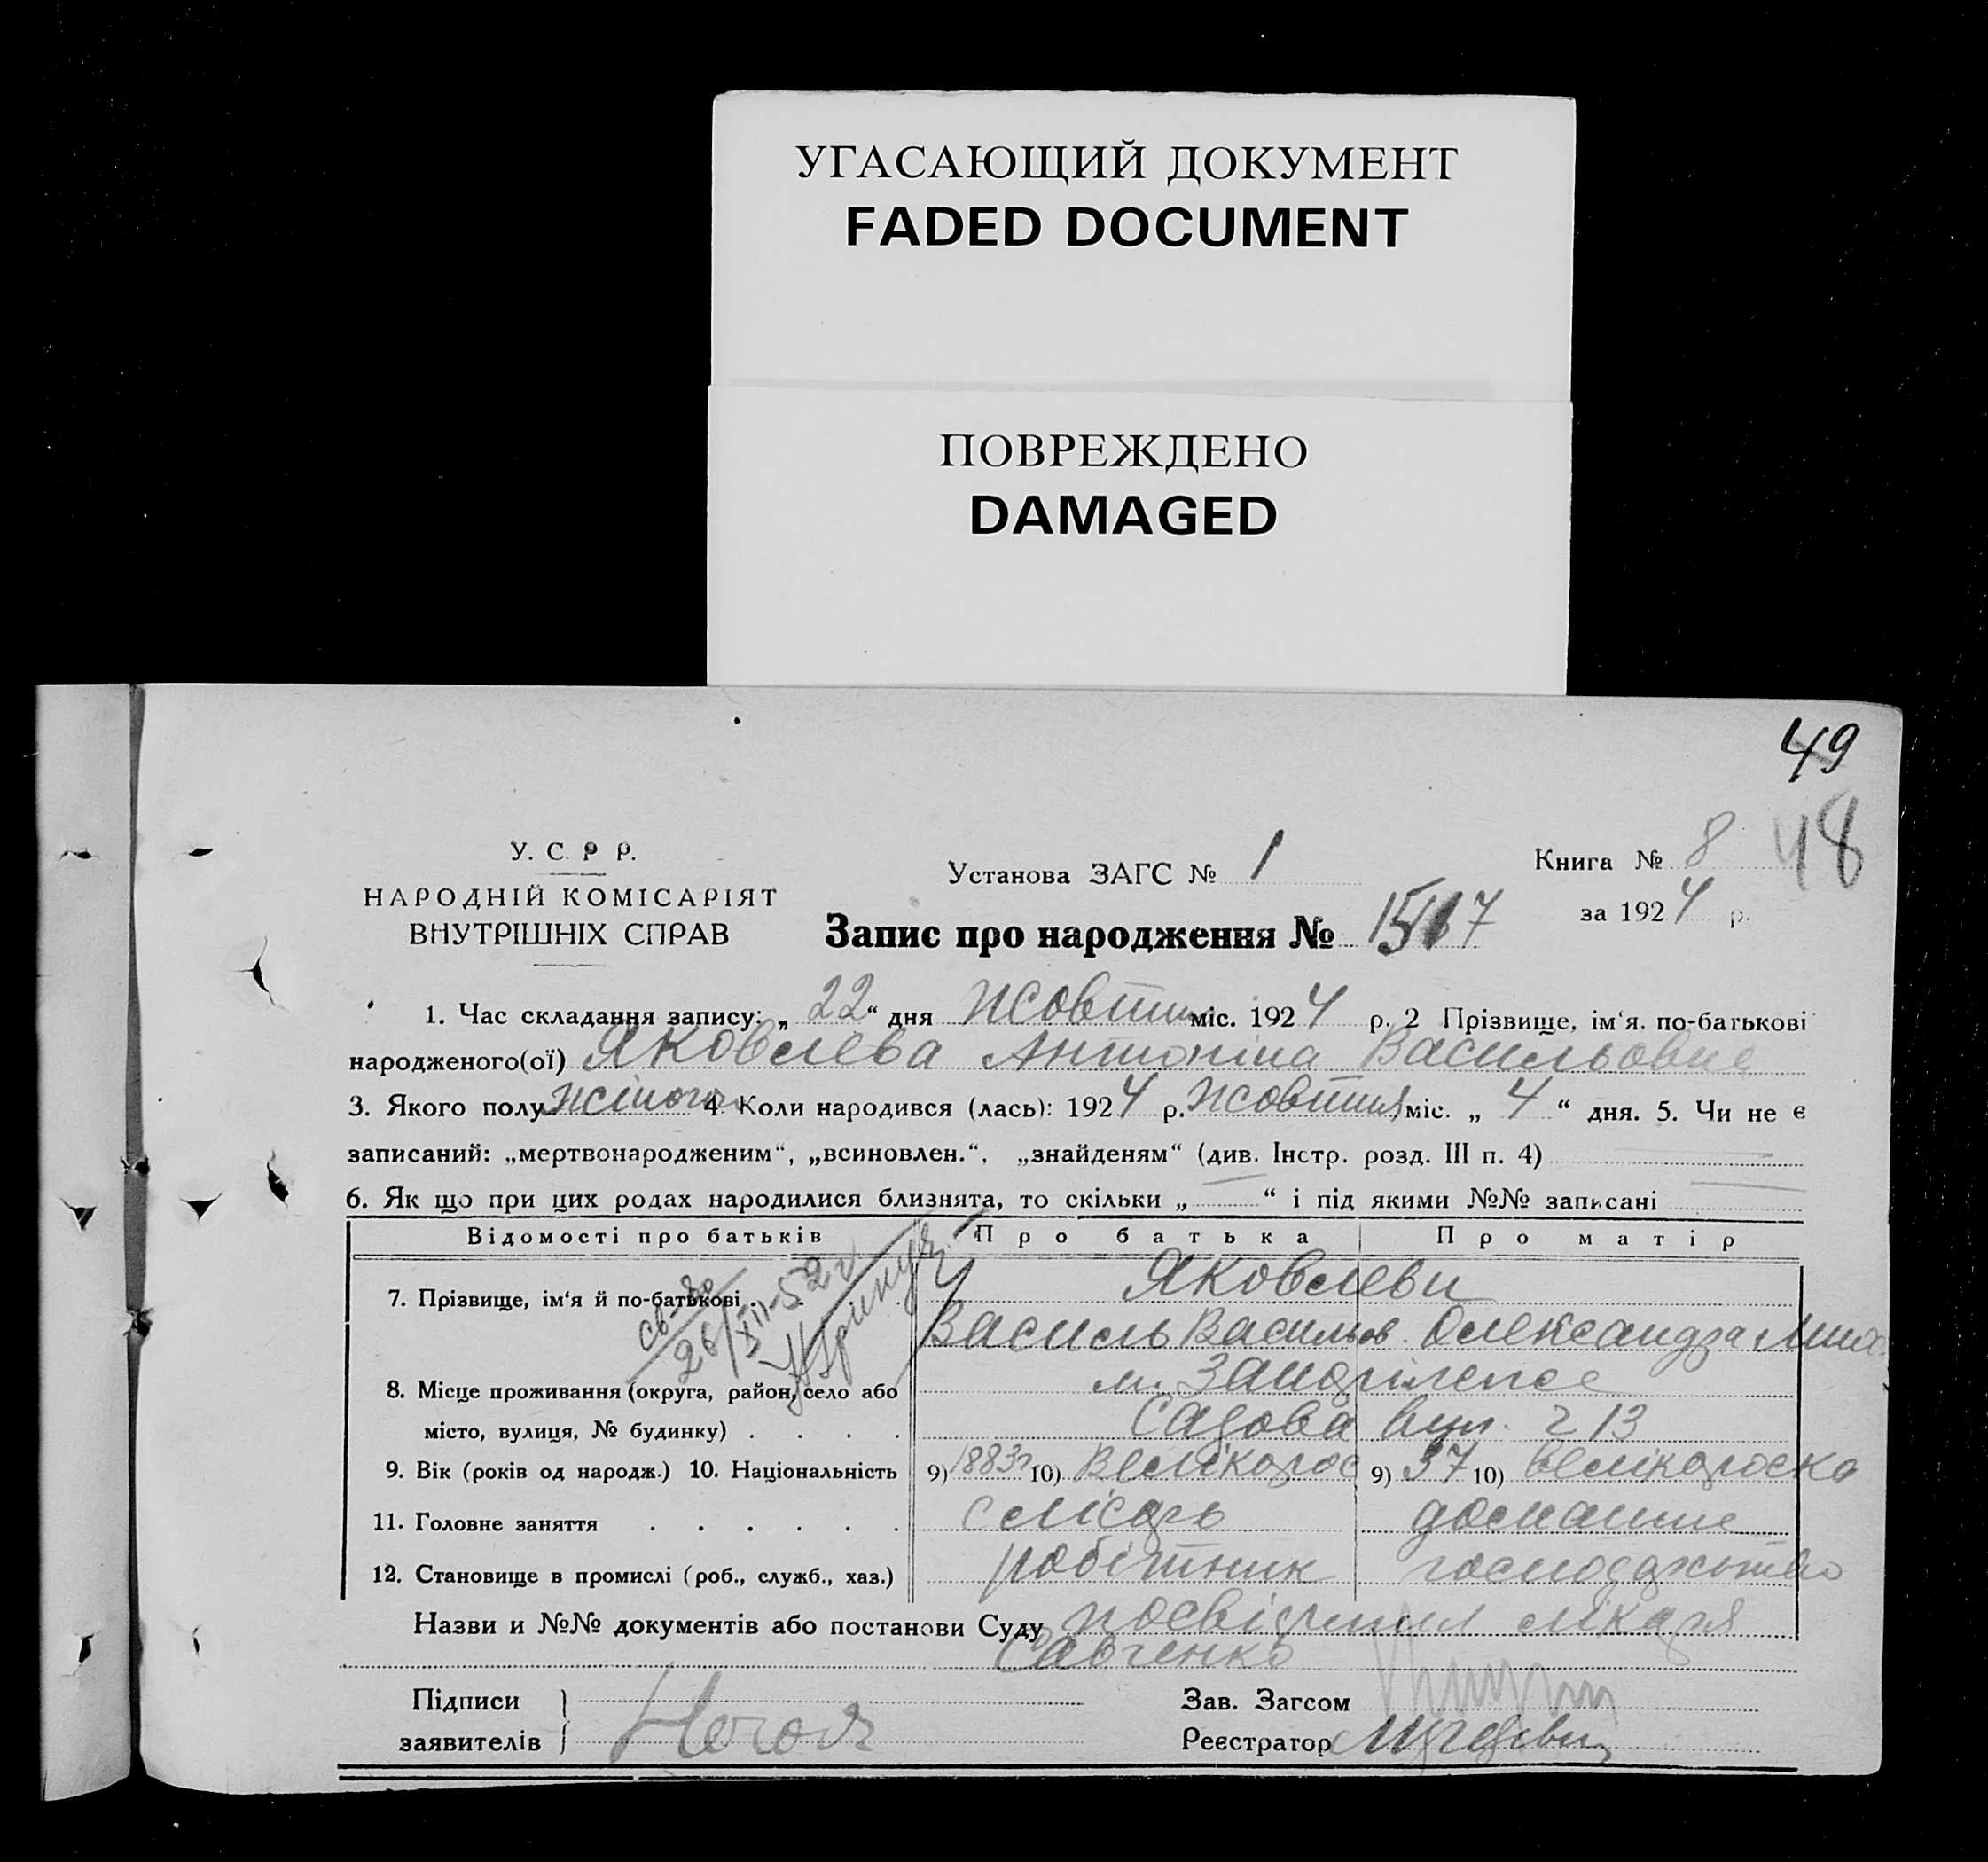 УГАСАЮЩИЙ ДОКУМЕНТ
FADED DOCUMENT
ПОВРЕЖДЕНО
DAMAGED
49
48
У. С. Р Р.
НАРОДНІЙ КОМІСАРІЯТ
ВНУТРІШНІХ СПРАВ
Установа ЗАГС № 1
Книга № 8
за 1924 р.
Запис про народження №
1. Час складання запису: „ 22 “ дня Жовтня міс. 1924 р. 2 Прізвище, ім‘я. по-батькові
народженого(ої) Яковлева Антоніна Васильовна
3. Якого полу жіночого 4 Коли народився (лась): 1924 р. Жовтня міс. „ 4 “ дня. 5. Чи не є
записаний: „мертвонародженим“, „всиновлен.“, „знайденям“ (див. Інстр. розд. III п. 4)
6. Як що при цих родах народилися близнята, то скільки „ — “ і під якими №№ записані —
Відомості про батьків Про батька Про матір
7. Прізвище, ім‘я й по-батькові Яковлеви
Василь Васильов. Олександра Мих.
св-во
26/XII-52 г
8. Місце проживання (округа, район, село або
м.
місто, вулиця, № будинку) Садова вул. 13
9. Вік (років од народж.) 10. Національність 9) 1883 г 10) Велікорос 9) 37 10) велікороска
11. Головне заняття слісарь домашнє
12. Становище в промислі (роб., служб., хаз.) робітник господарство
Назви и №№ документів або постанови Суду посвідчення лікаря
Савченко
Підписи
заявителів
Зав. Загсом
Реєстратор